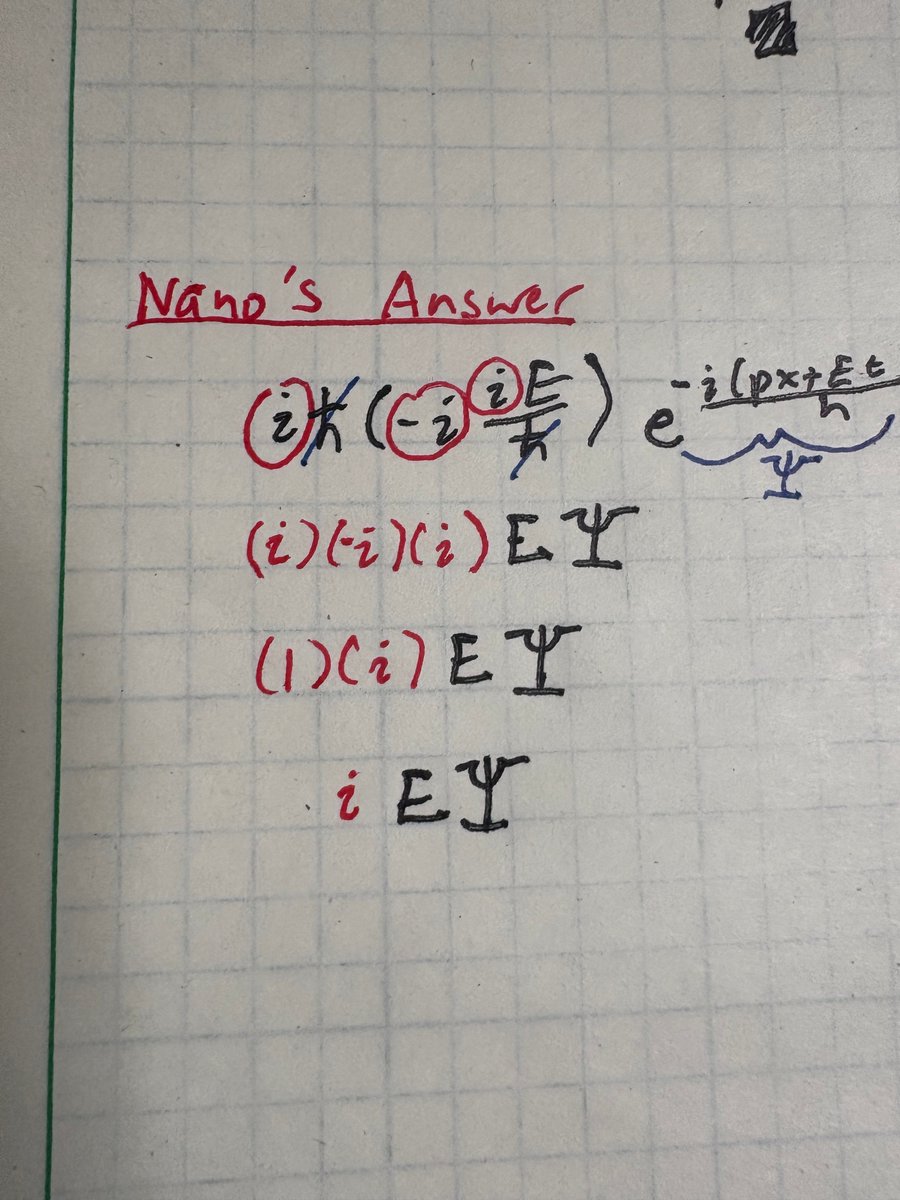 Nano's Answer
iħ(-i iE/ħ) e^-i(px+Et/ħ
Ψ
(i)(-i)(i) EΨ
(1)(i) EΨ
i EΨ